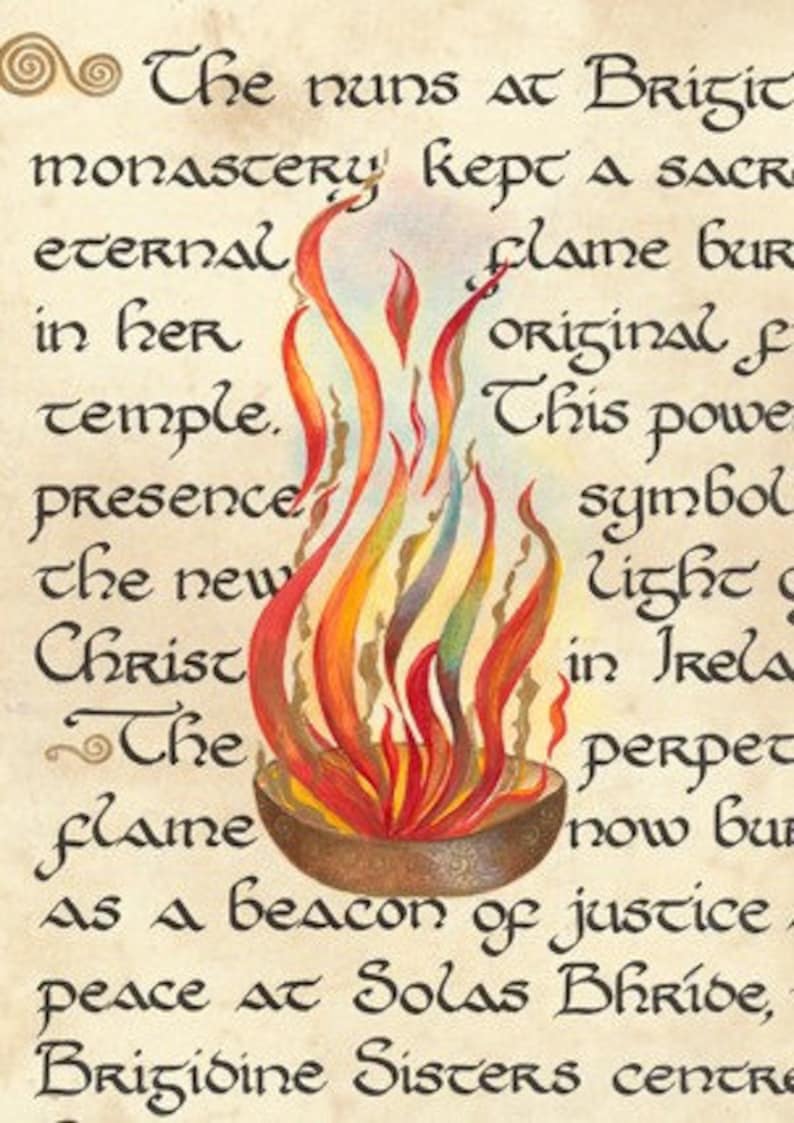 The nuns at Brigit
monastery kept a sacr
eternal flame bur
in her original f
temple. This powe
presence symbol
the new light o
Christ in Irela
The perpet
flame now bur
as a beacon of justice
peace at Solas Bhríde,
Brigidine Sisters centre